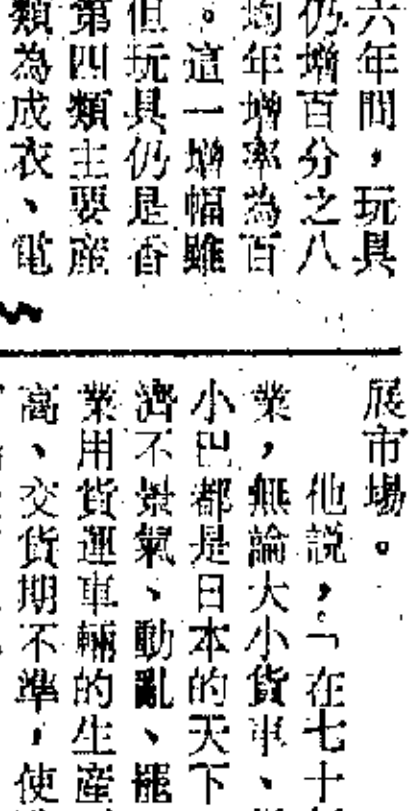 六年間，玩具
仍增百分之八
均年增率為百
。這一增幅雖
但玩具仍是香
第四類主要產
類為成衣、電
展市場。
他說，「在七十
業，無論大小貨車、
小巴都是日本的天下
濟不景氣、動亂、罷
業用貨運車輛的生產
高、交貨期不準，使